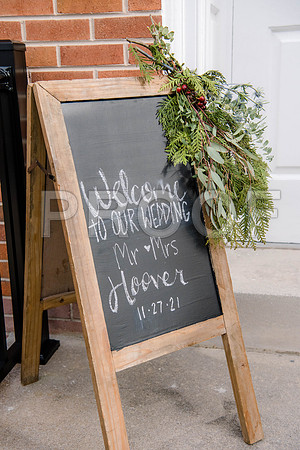 Welcome
TO OUR WEDDING
Mr ♥ Mrs
Hoover
11-27-21
PROOF